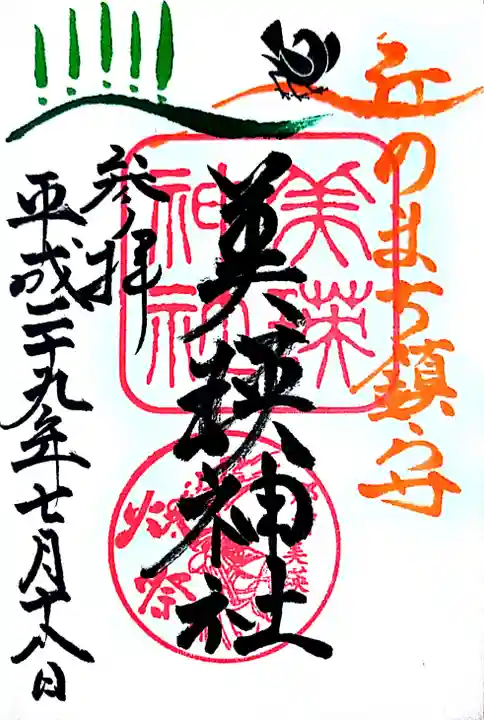 丘のまち鎮守
美瑛神社
参拝
平成二十九年七月十八日
美瑛
神社
美瑛
火祭